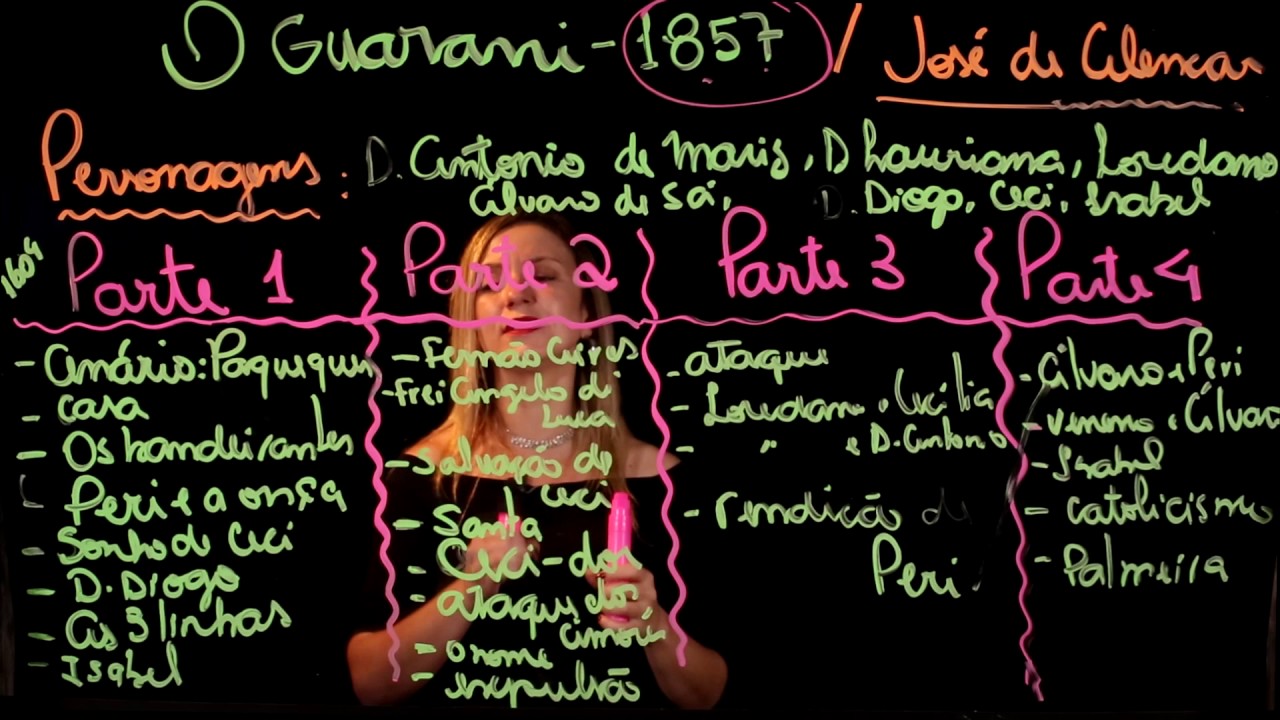 O Guarani - 1857 / José de Alencar
Personagens: D. Antonio de Mariz, D Lauriana, Loredano
Álvaro de Sá, D. Diogo, Ceci, Isabel
1604
Parte 1
- Cenário: Paquequer
- casa
- Os bandeirantes
Peri e a onça
- Sonho de Ceci
- D. Diogo
- As 3 linhas
- Isabel
Parte 2
- Fernão Aires
- Frei Angelo di Luca
- Salvação de Ceci
- Santa
- Ceci - dor
- ataque dos aimoré
- o nome
- expulsão
Parte 3
- ataque
- Loredano e Cecília
- " e D. Antonio
- rendição de Peri
Parte 4
- Álvaro e Peri
- veneno e Álvaro
- Isabel
- catolicismo
- Palmeira